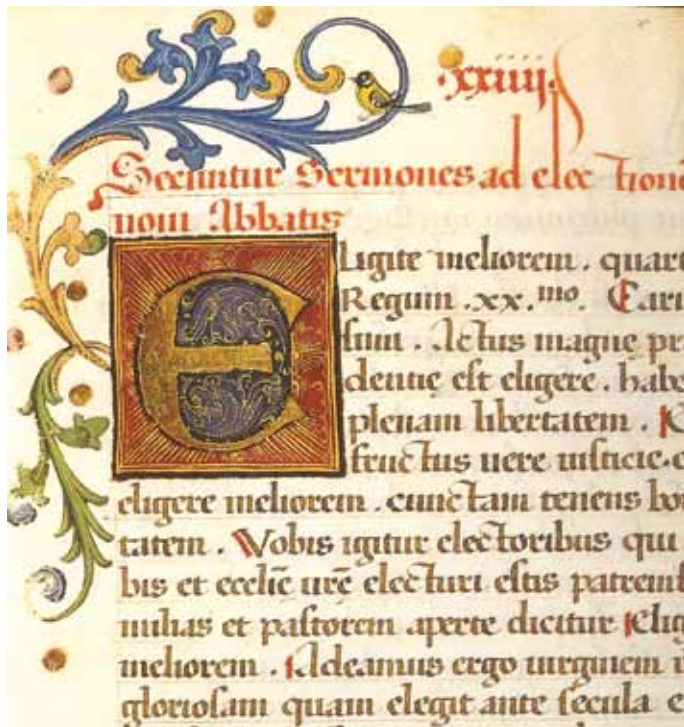 .xxiiij.
Secuntur Sermones ad electione
noui Abbatis
Eligite meliorem. quart
Regum .xx.mo. Cari
simi. Actus magnę pr
dentię est eligere. habe
plenam libertatem.
fructus uere iusticie. e
eligere meliorem. cunctam tenens bo
tatem. Vobis igitur electoribus qui
bis et eccliē urē electuri estis patremf
milias et pastorem aperte dicitur Elig
meliorem. Adeamus ergo uirginem
gloriosam quam elegit ante secula e